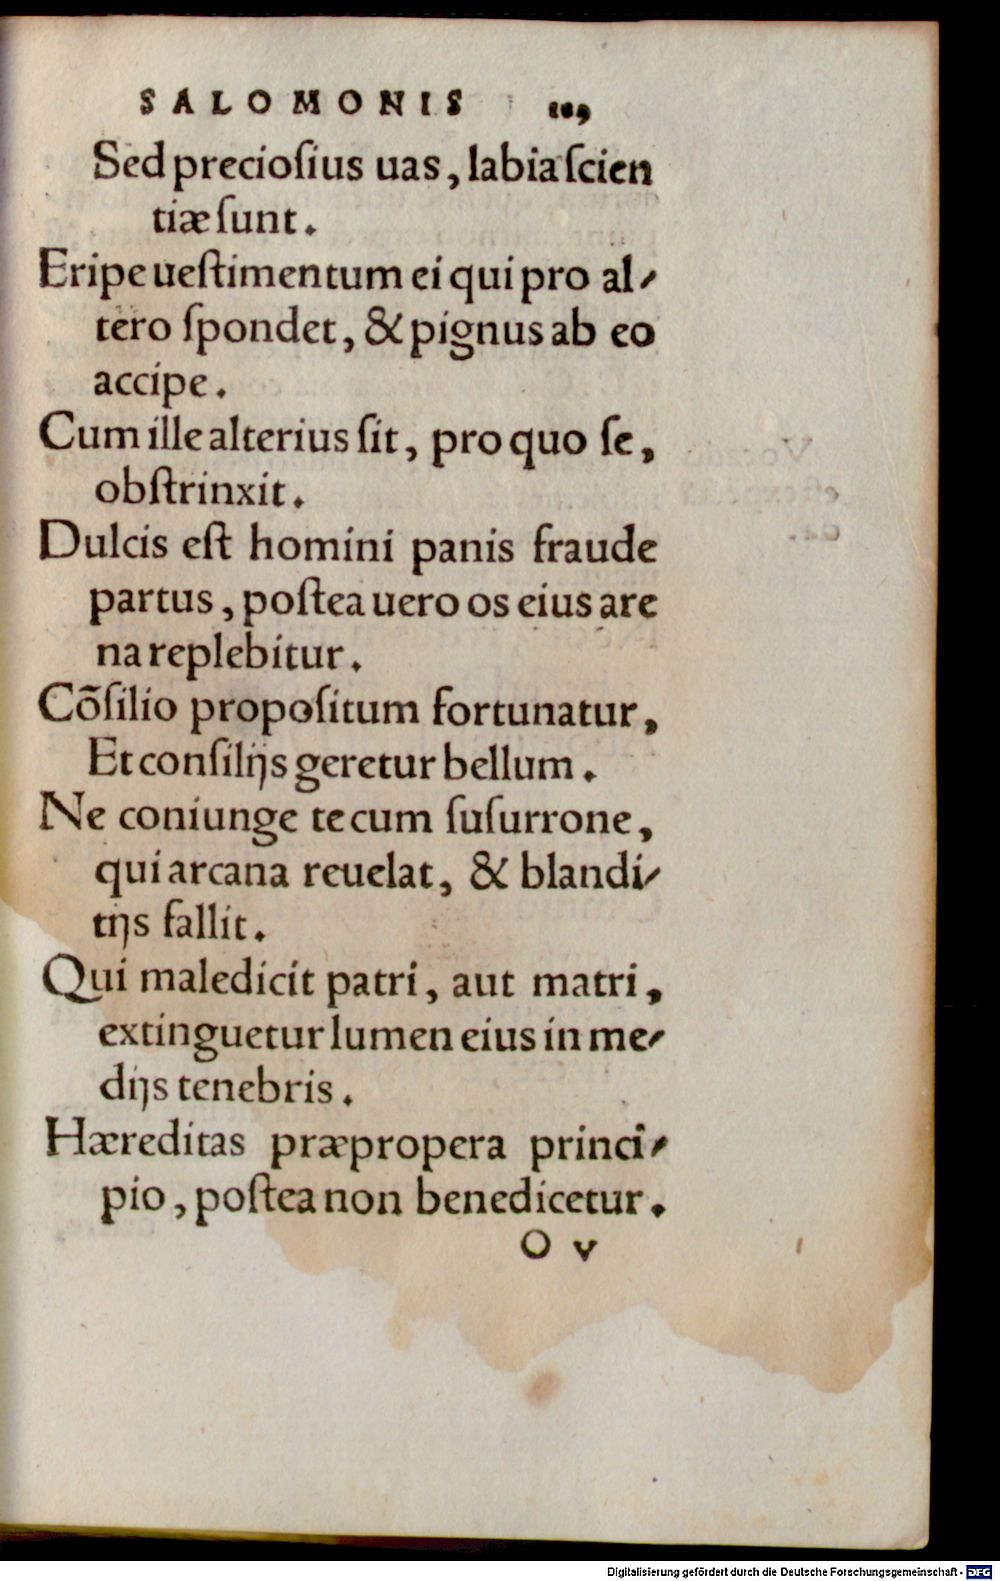 SALOMONIS 109
Sed precioſius uas, labia ſcien
tiæ ſunt.
Eripe ueſtimentum ei qui pro al-
tero ſpondet, & pignus ab eo
accipe.
Cum ille alterius ſit, pro quo ſe,
obſtrinxit.
Dulcis eſt homini panis fraude
partus, poſtea uero os eius are
na replebitur.
Cõſilio propoſitum fortunatur,
Et conſilijs geretur bellum.
Ne coniunge tecum ſuſurrone,
qui arcana reuelat, & blandi-
tijs fallit.
Qui maledicit patri, aut matri,
extinguetur lumen eius in me-
dijs tenebris.
Hæreditas præpropera princi-
pio, poſtea non benedicetur.
O v
Digitalisierung gefördert durch die Deutsche Forschungsgemeinschaft - DFG